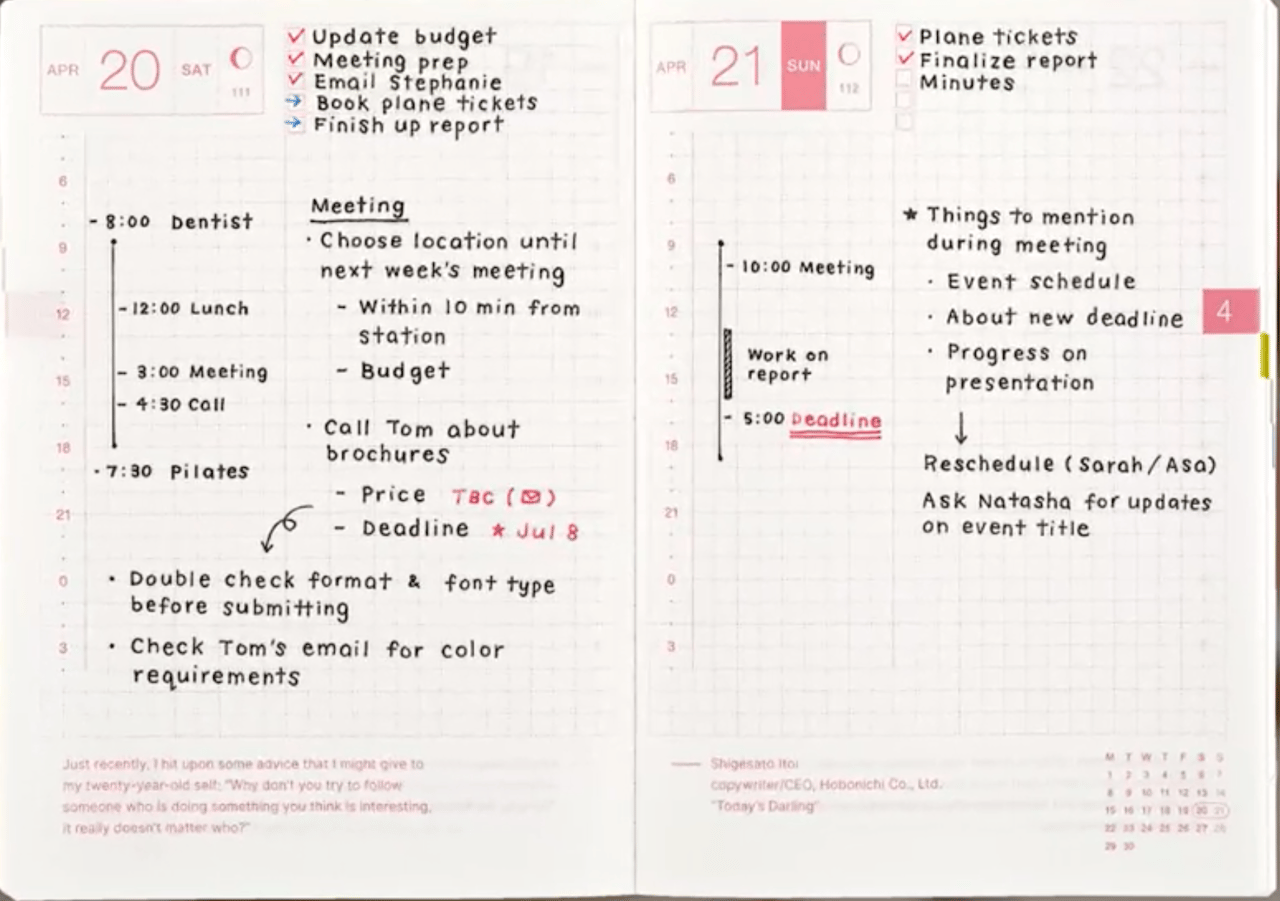 APR 20 SAT
111
Update budget
Meeting prep
Email Stephanie
Book plane tickets
Finish up report
6
9
12
15
18
21
0
3
- 8:00 Dentist
- 12:00 Lunch
- 3:00 Meeting
- 4:30 Call
· 7:30 Pilates
Meeting
· Choose location until
next week's meeting
- Within 10 min from
station
- Budget
· Call Tom about
brochures
- Price TBC (✉)
- Deadline ★ Jul 8
· Double check format & font type
before submitting
· Check Tom's email for color
requirements
Just recently, I hit upon some advice that I might give to
my twenty-year-old self: "Why don't you try to follow
someone who is doing something you think is interesting,
it really doesn't matter who?"
APR 21 SUN
112
Plane tickets
Finalize report
Minutes
6
9
12
15
18
21
0
3
- 10:00 Meeting
Work on
report
- 5:00 Deadline
★ Things to mention
during meeting
· Event schedule
· About new deadline
· Progress on
presentation
↓
Reschedule (Sarah/Asa)
Ask Natasha for updates
on event title
4
— Shigesato Itoi
copywriter/CEO, Hobonichi Co., Ltd.
"Today's Darling"
M T W T F S S
1 2 3 4 5 6 7
8 9 10 11 12 13 14
15 16 17 18 19 20 21
22 23 24 25 26 27 28
29 30